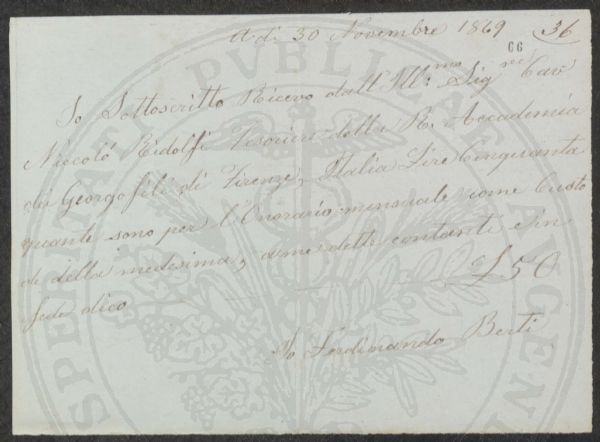 A dì 30 Novembre 1869 36
66
Io Sottoscritto Ricevo dall' Ill:mo Sigre Cav
Niccolò Ridolfi Tesoriere della R. Accademia
dei Georgofili di Firenze, Italia Lire Cinquanta
quante sono per l'Onorario mensuale come Custo
de della medesima, a me dette contanti e in
fede dico £50
Io Ferdinando Berti
PUBLICAE
PROSPERITATI AUGENDAE